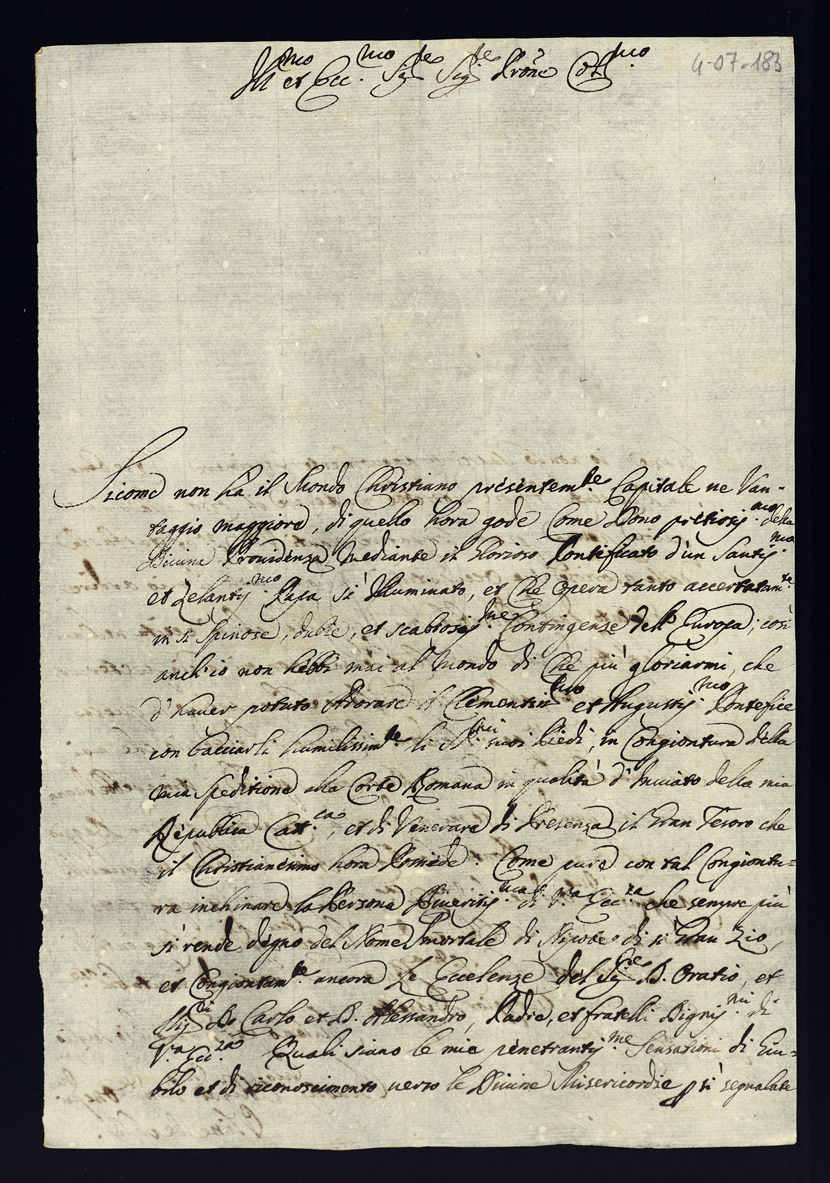 Ill.mo et Ecc.mo Sig.re Sig.re Prone Col.mo
4-07-183
Sicome non ha il Mondo Christiano presentem.te Capitale ne Van-
taggio maggiore, di quello hora gode Come Dono pretiosiss.mo della
Divina Providenza mediante il glorioso Pontificato d'un Santiss.mo
et Zelantiss.mo Papa si illuminato, et che opera tanto accertatam.te
in si spinose, dubie, et scabrosiss.me Contingenze dell' Europa; così
anch'io non hebbi mai al mondo di che più gloriarmi, che
d'haver potuto Adorare il Clementiss.mo et Augustiss.mo Pontefice
con bacciarli humilissim.te li S.mi suoi Piedi, in Congiontura della
mia speditione alla Corte Romana in qualità d'Inviato della mia
Republica Catt.ca, et di Venerare di Presenza il Gran Tesoro che
il Christianesimo hora Possiede. Come pure con tal Congiontu=
ra inchinare la Persona Riveritiss.ma di V.ra Ecc.za che sempre più
si rende degno del Nome Immortale di Nipote di si Gran Zio,
et Congiontam.te ancora le Eccelenze del Sig.re D. Oratio, et
Sig.ri D. Carlo et D. Alessandro, Padre, et fratelli Digniss.mi di
V.ra Ecc.za Quali siano le mie penetrantiss.me Sensationi di Giu-
bilo et di riconoscimento verso le Divine Misericordie p si segnalate